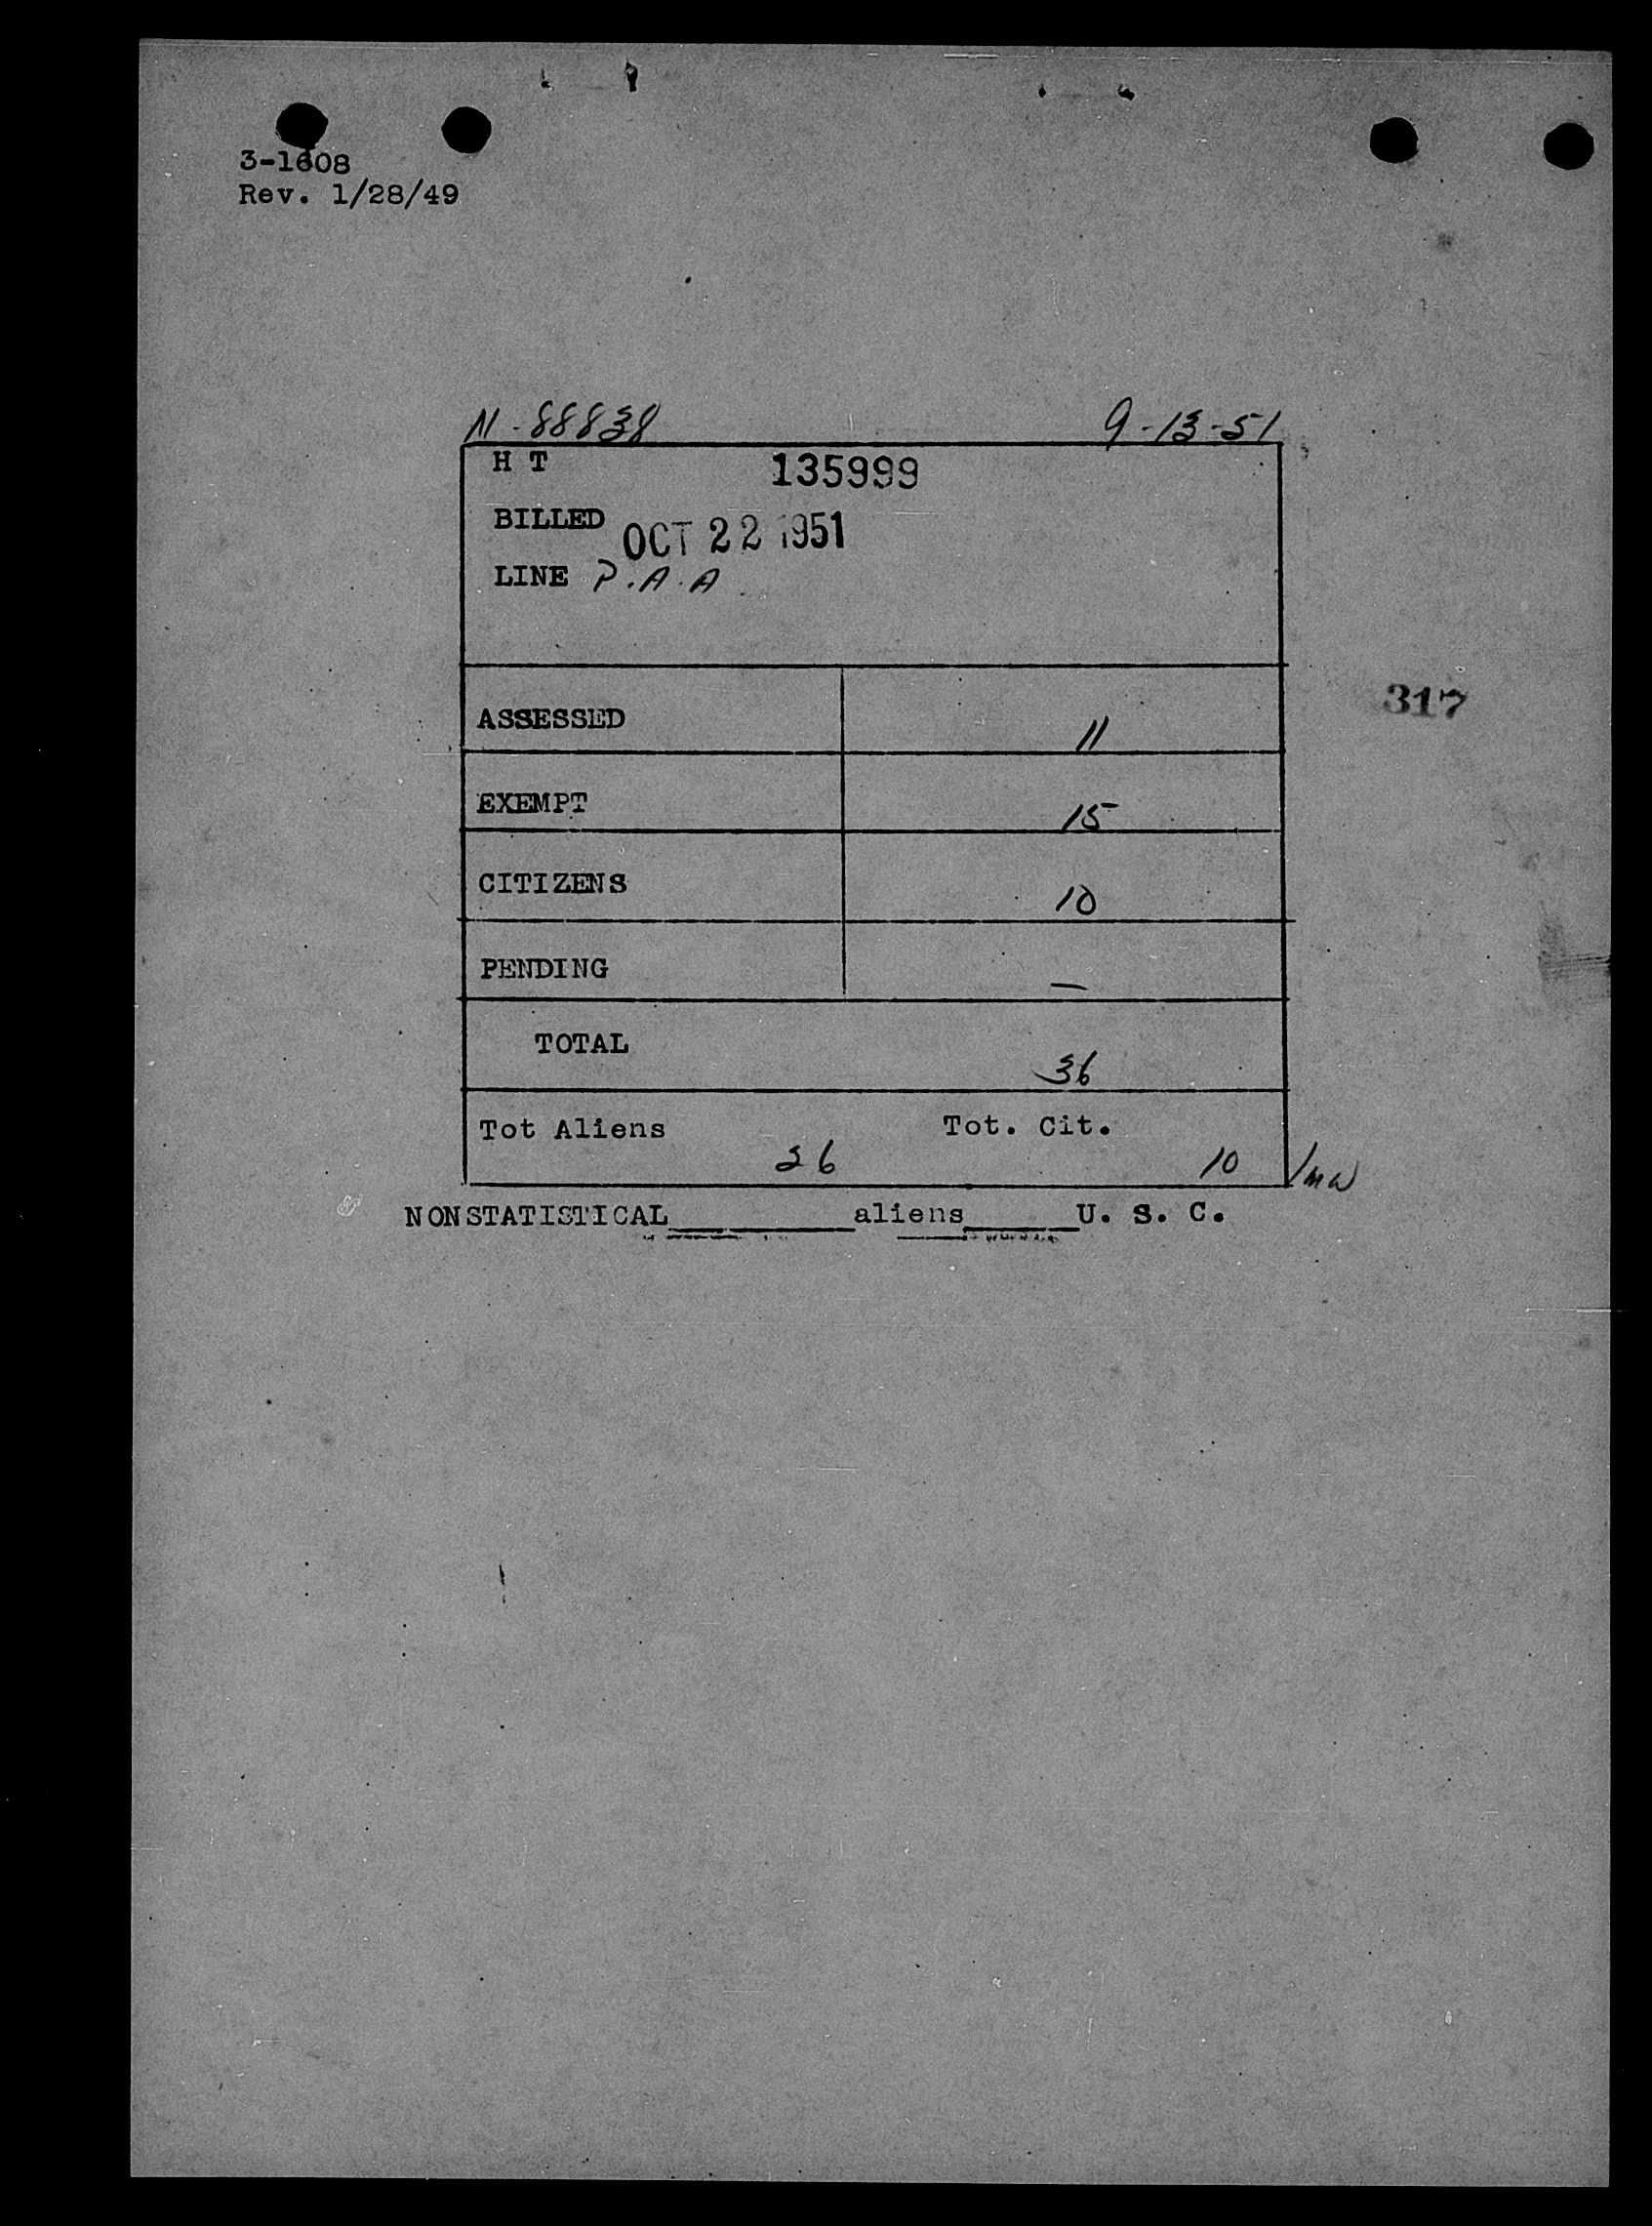 3-1608
Rev. 1/28/49
N-88838 9-13-51
H T 135999
BILLED OCT 22 1951
LINE P.A.A
317
ASSESSED 11
EXEMPT 15
CITIZENS 10
PENDING —
TOTAL 36
Tot Aliens 26 Tot. Cit. 10 /mw
NONSTATISTICAL__________aliens______U. S. C.